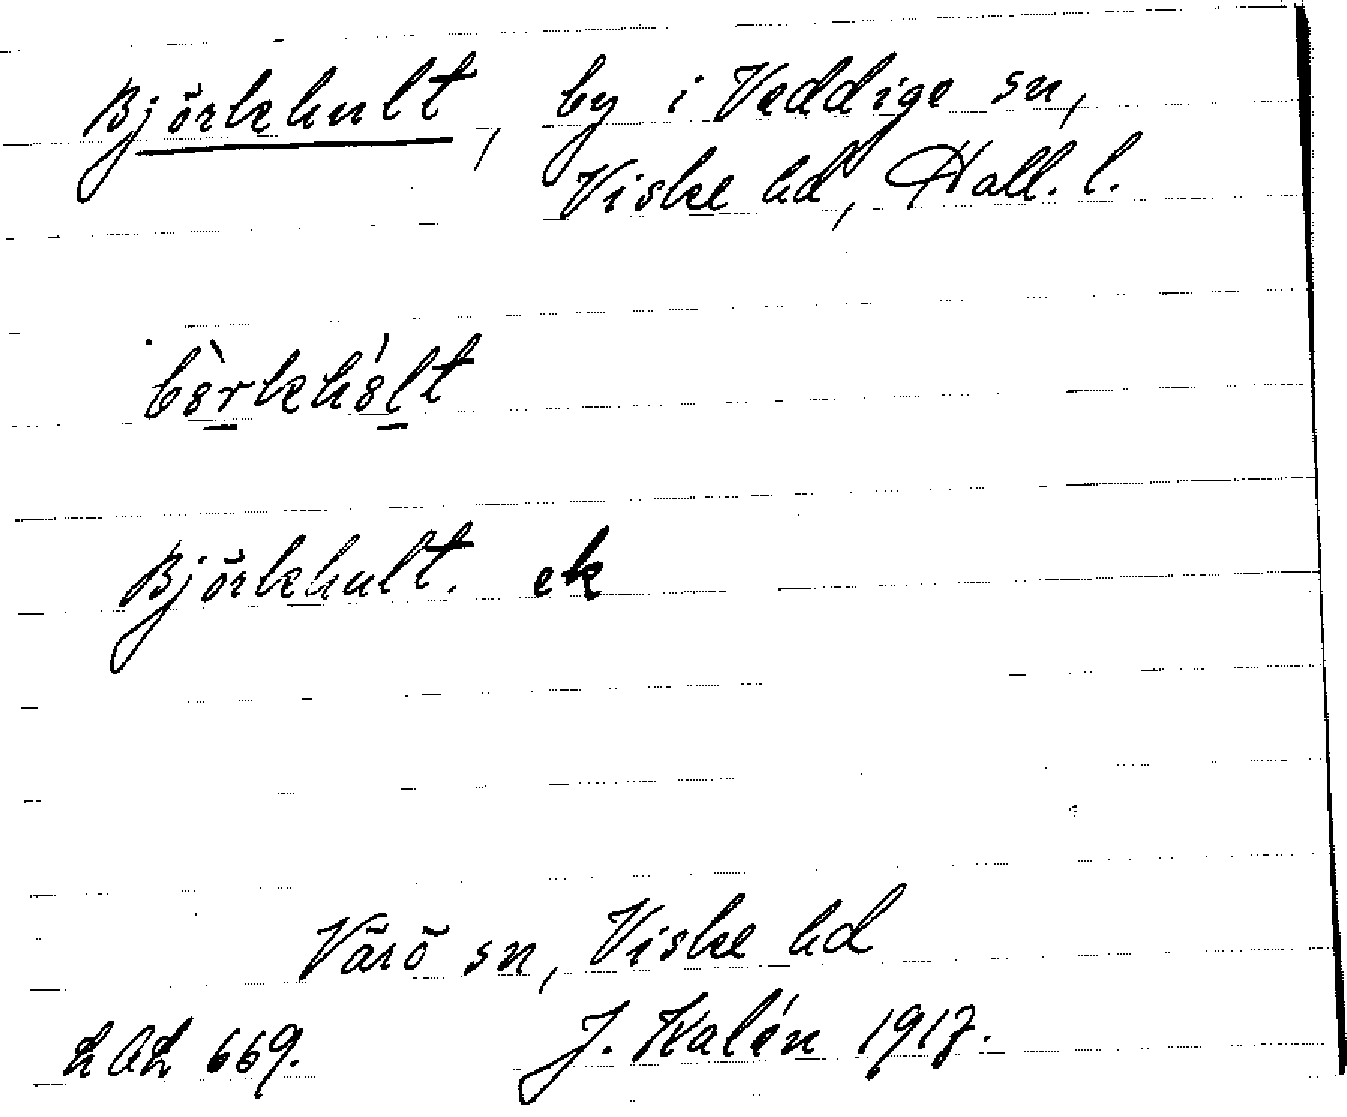 Björkhult, by i Veddige sn,
Viske hd, Hall. l.
Björkhult. ek
Värö sn, Viske hd
LAL 669. J. Kalén 1917.